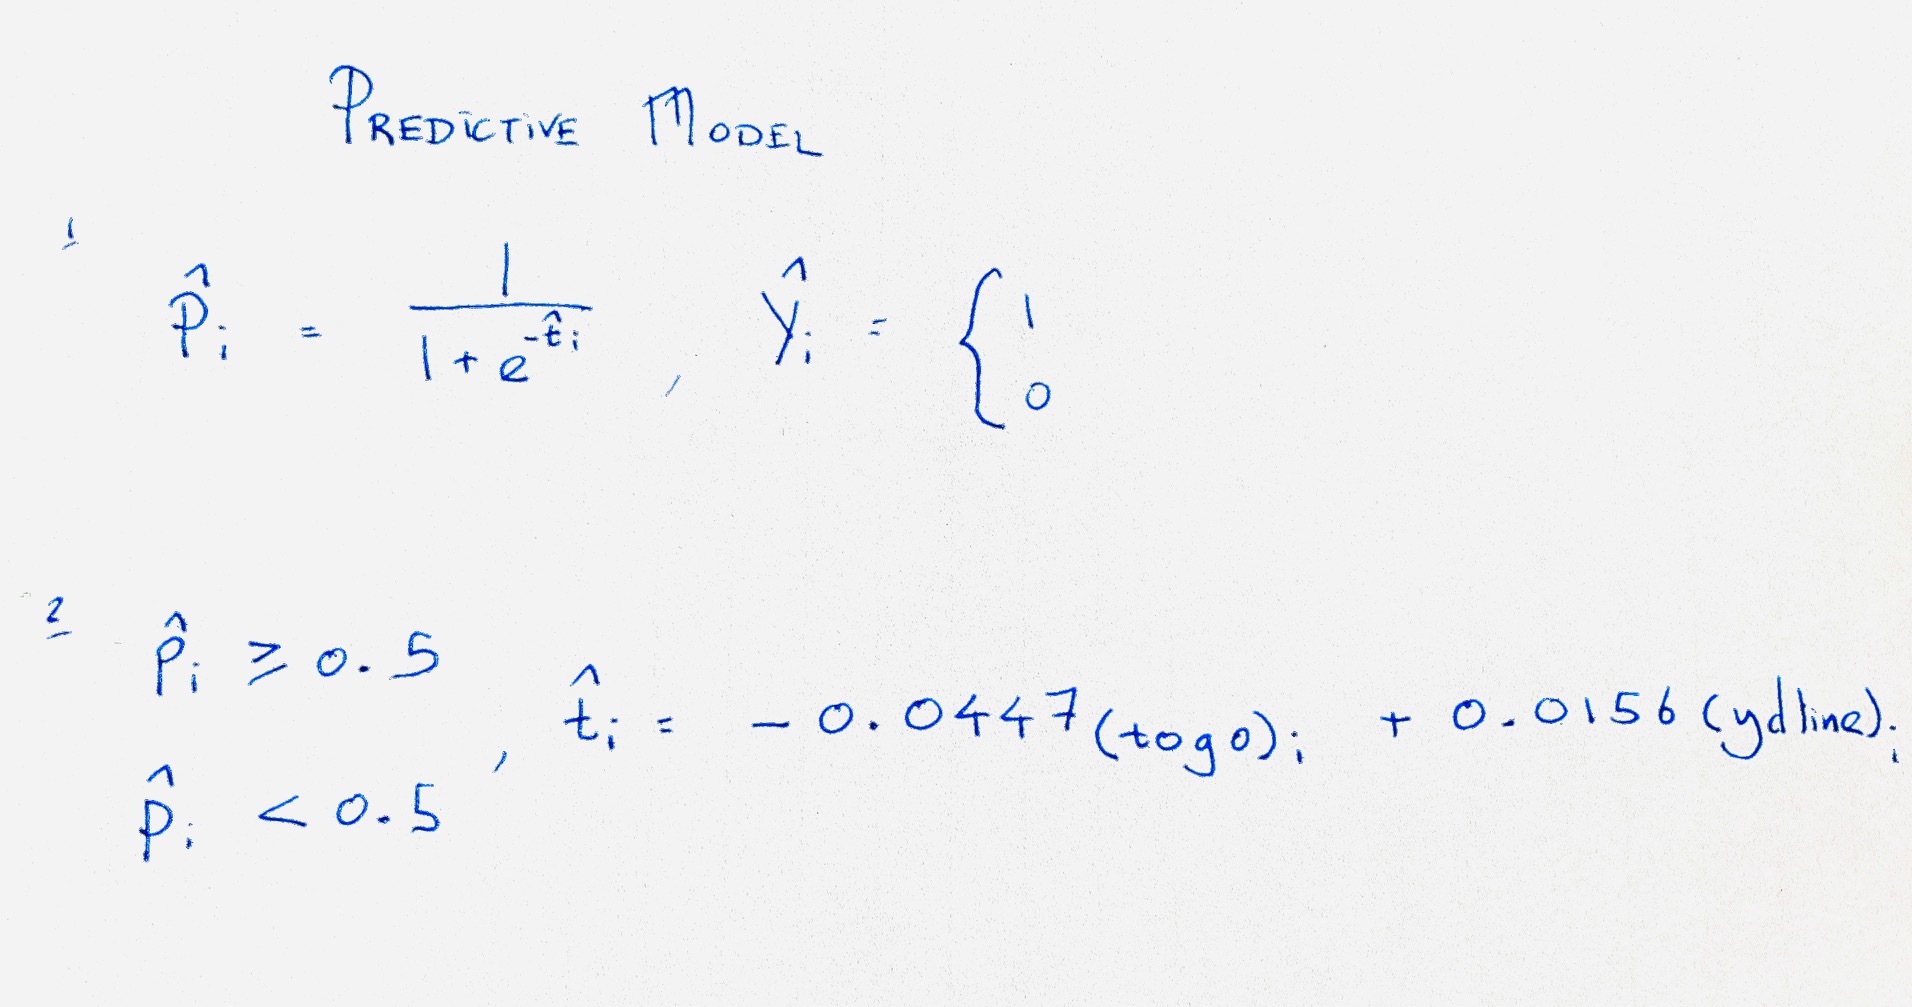 PREDICTIVE MODEL
1
p̂ᵢ = 1 / (1 + e^(-t̂ᵢ)) , ŷᵢ = { 1
0
2
p̂ᵢ ≥ 0.5
, t̂ᵢ = - 0.0447 (togo)ᵢ + 0.0156 (ydline)ᵢ
p̂ᵢ < 0.5